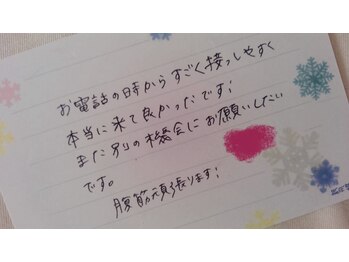 お電話の時からすごく接っしやすく
本当に来て良かったです！
また別の機会にお願いしたい
です。
腹筋頑張ります！